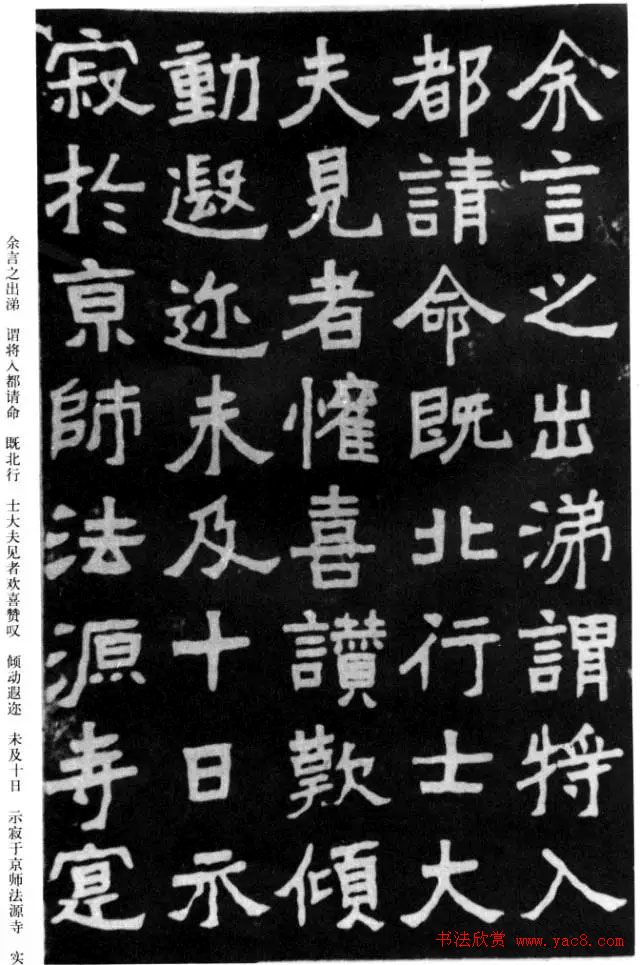 余言之出涕謂将入
都請命既北行士大
夫見者懽喜讃歎傾
動遐迩未及十日示
寂於京師法源寺寔
余言之出涕 谓将入都请命 既北行 士大夫见者欢喜赞叹 倾动遐迩 未及十日 示寂于京师法源寺 实
书法欣赏 www.yac8.com